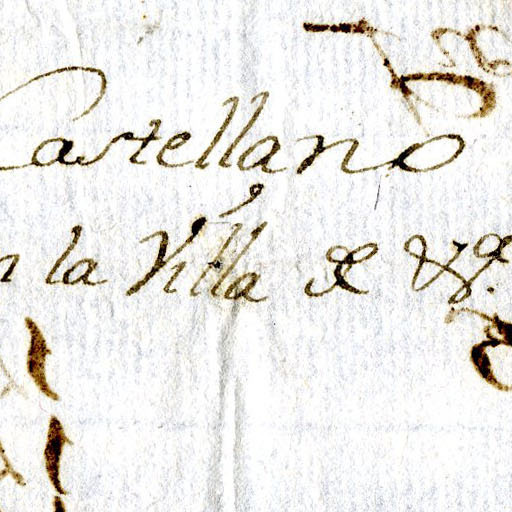 Castellano
n la Villa de